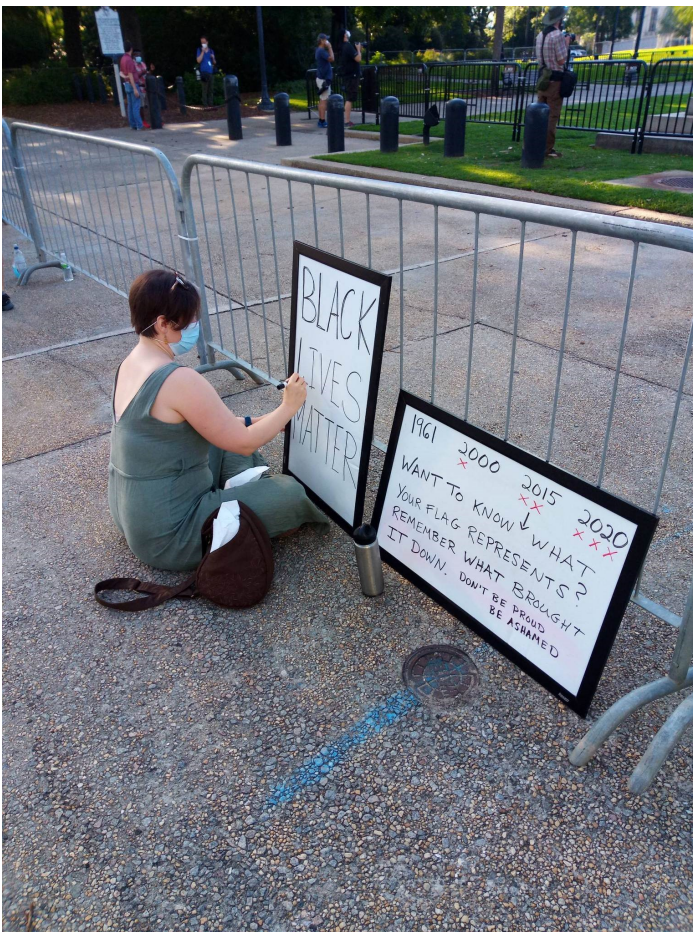 BLACK
LIVES
MATTER
1961 2000 2015 2020
× ×× ×××
WANT TO KNOW ↓ WHAT
YOUR FLAG REPRESENTS?
REMEMBER WHAT BROUGHT
IT DOWN. DON'T BE PROUD
BE ASHAMED